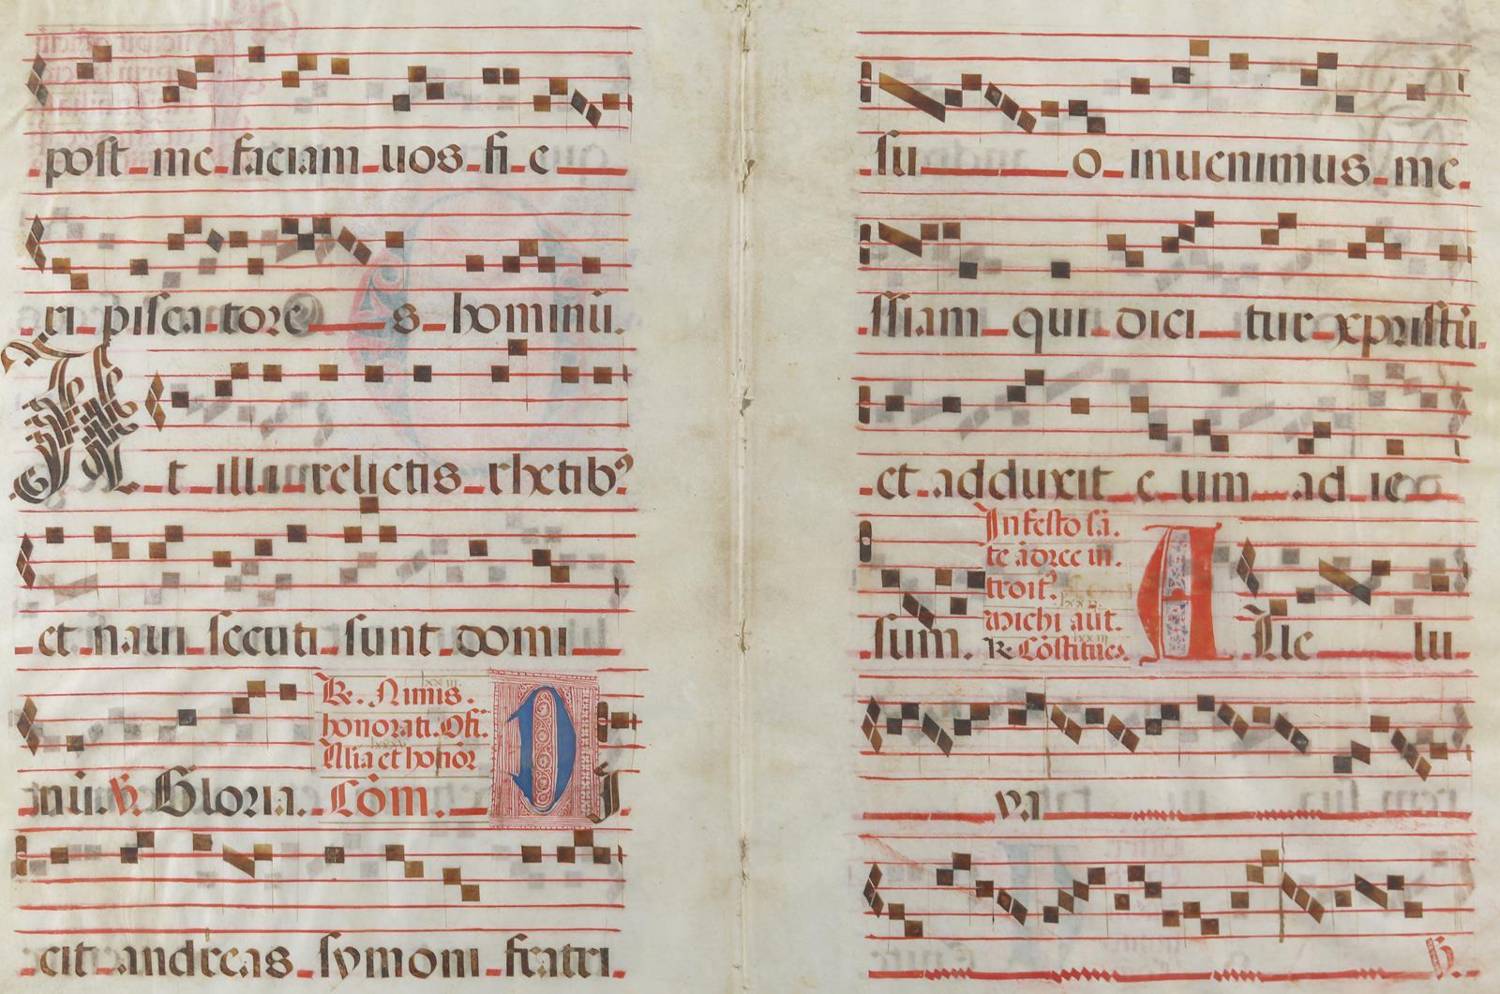 post me faciam uos fi e
ri piscatore s hominū.
At illi relictis rhetib⁹
et naui secuti sunt domi
nū. ℣. Gloria. Com.
℟. Nimis.
honorati. Off.
Mihi
D I
cit andreas symoni fratri.
su o inuenimus me
ssiam qui dici tur xpristū.
et adduxit e um ad ie
sum.
In festo sā
te ādree in
troit⁹.
michi aūt.
℟. Cōstitues.
A lle lu
ya